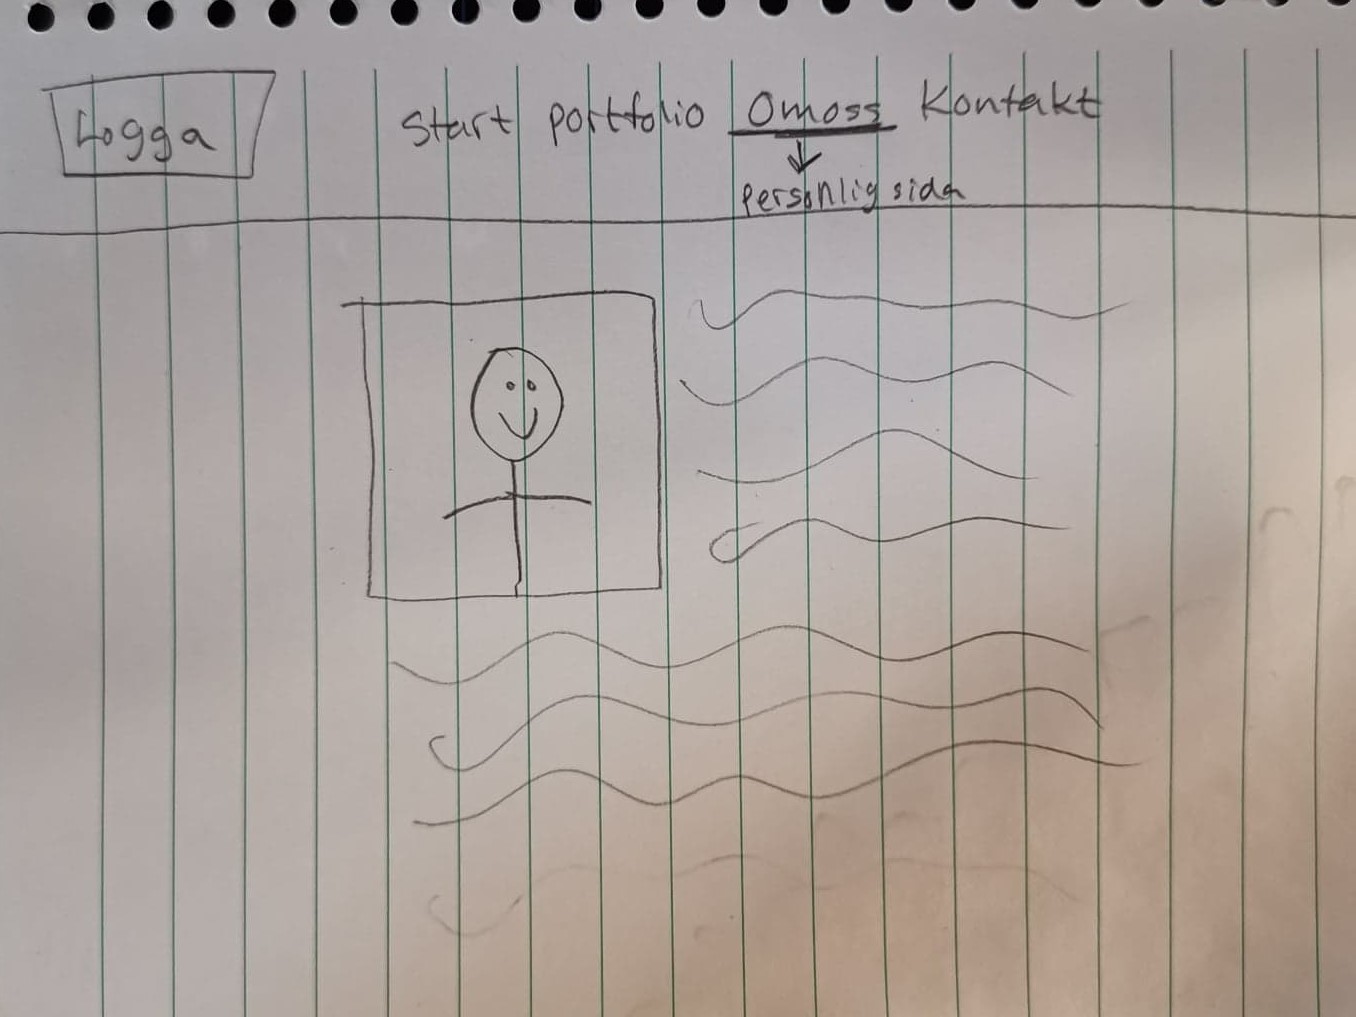 Logga
Start portfolio Omoss Kontakt
personlig sida